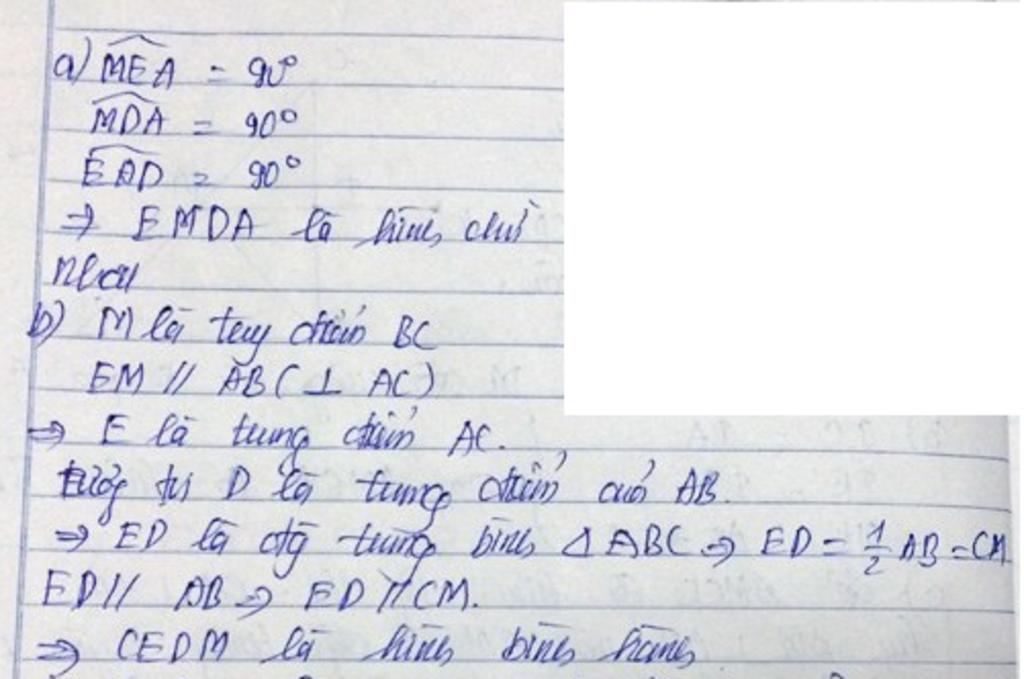 a) MEA = 90°
MDA = 90°
EAD = 90°
=> EMDA là hình chữ
nhật
b) M là trung điểm BC
EM // AB (⊥ AC)
=> E là trung điểm AC.
Tương tự D là trung điểm của AB.
=> ED là đg trung bình Δ ABC => ED = 1/2 AB = CM
ED // AB => ED // CM.
=> CEDM là hình bình hành